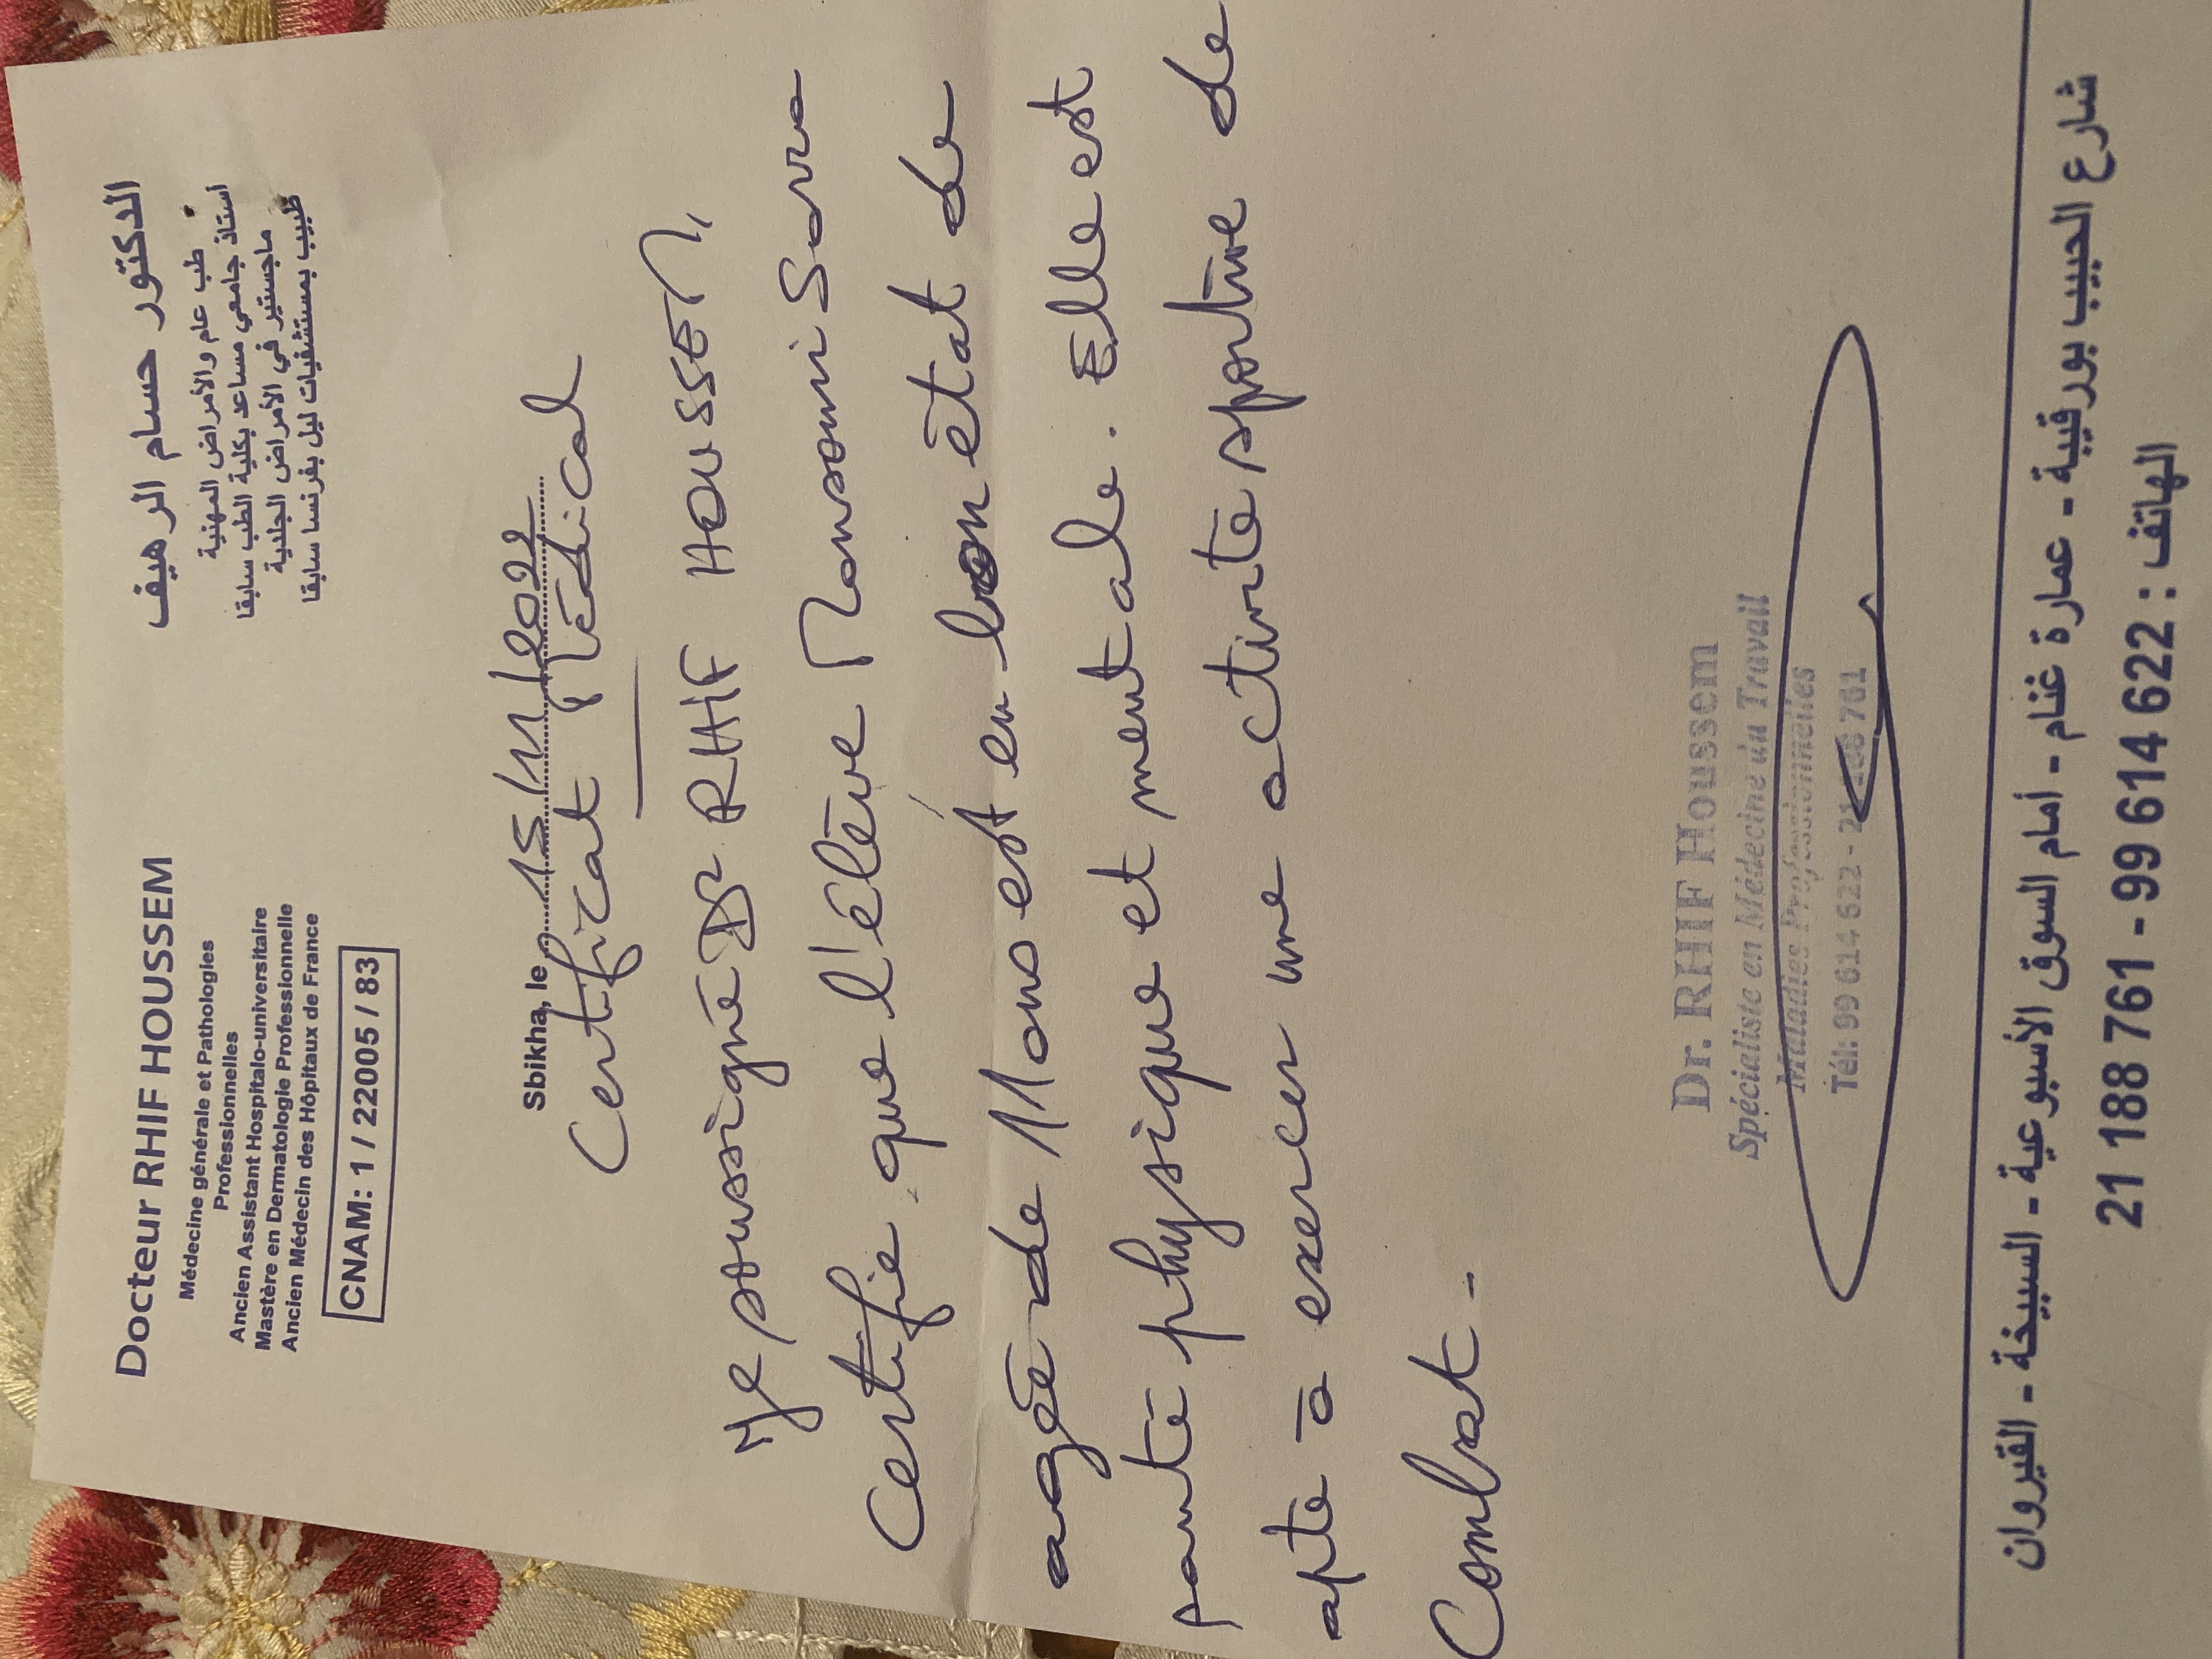 Docteur RHIF HOUSSEM
Médecine générale et Pathologies
Professionnelles
Ancien Assistant Hospitalo-universitaire
Mastère en Dermatologie Professionnelle
Ancien Médecin des Hôpitaux de France
CNAM: 1 / 22005 / 83
الدكتور حسام الرهيف
طب عام والأمراض المهنية
أستاذ جامعي مساعد بكلية الطب سابقا
ماجستير في الأمراض الجلدية
طبيب بمستشفيات ليل بفرنسا سابقا
Sbikha, le 15/11/2022
Certificat Médical
Je soussigné Dr RHIF HOUSSEM,
Certifie que l'élève
agée de 11 ans est en bon état de
santé physique et mentale. Elle est
apte à exercer une activité sportive de
Combat -
Dr. RHIF Houssem
Spécialiste en Médecine du Travail
Maladies Professionnelles
Tél: 99 614 622 - 21 188 761
شارع الحبيب بورقيبة - عمارة غنام - أمام السوق الأسبوعية - السبيخة - القيروان
الهاتف : 622 614 99 - 761 188 21